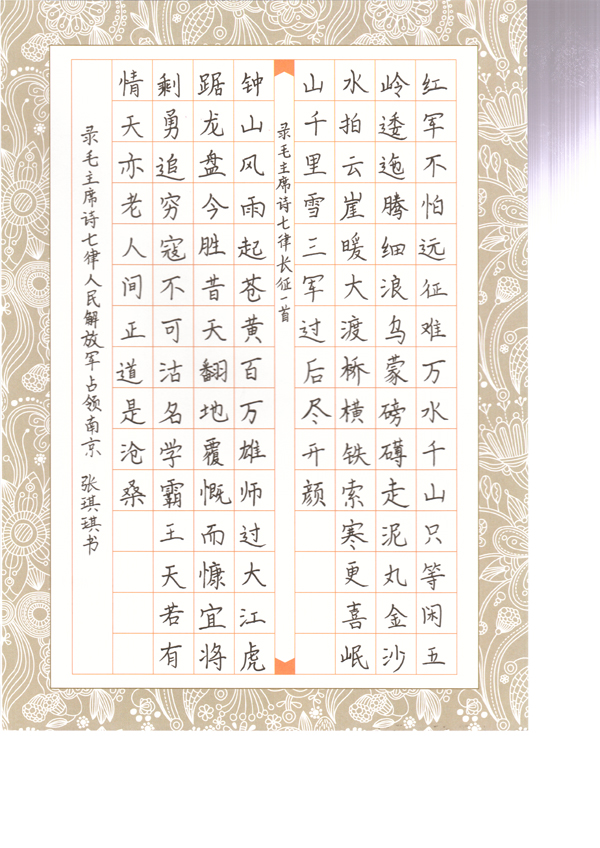 红军不怕远征难万水千山只等闲五
岭逶迤腾细浪乌蒙磅礴走泥丸金沙
水拍云崖暖大渡桥横铁索寒更喜岷
山千里雪三军过后尽开颜
录毛主席诗七律长征一首
钟山风雨起苍黄百万雄师过大江虎
踞龙盘今胜昔天翻地覆慨而慷宜将
剩勇追穷寇不可沽名学霸王天若有
情天亦老人间正道是沧桑
录毛主席诗七律人民解放军占领南京 张琪琪书